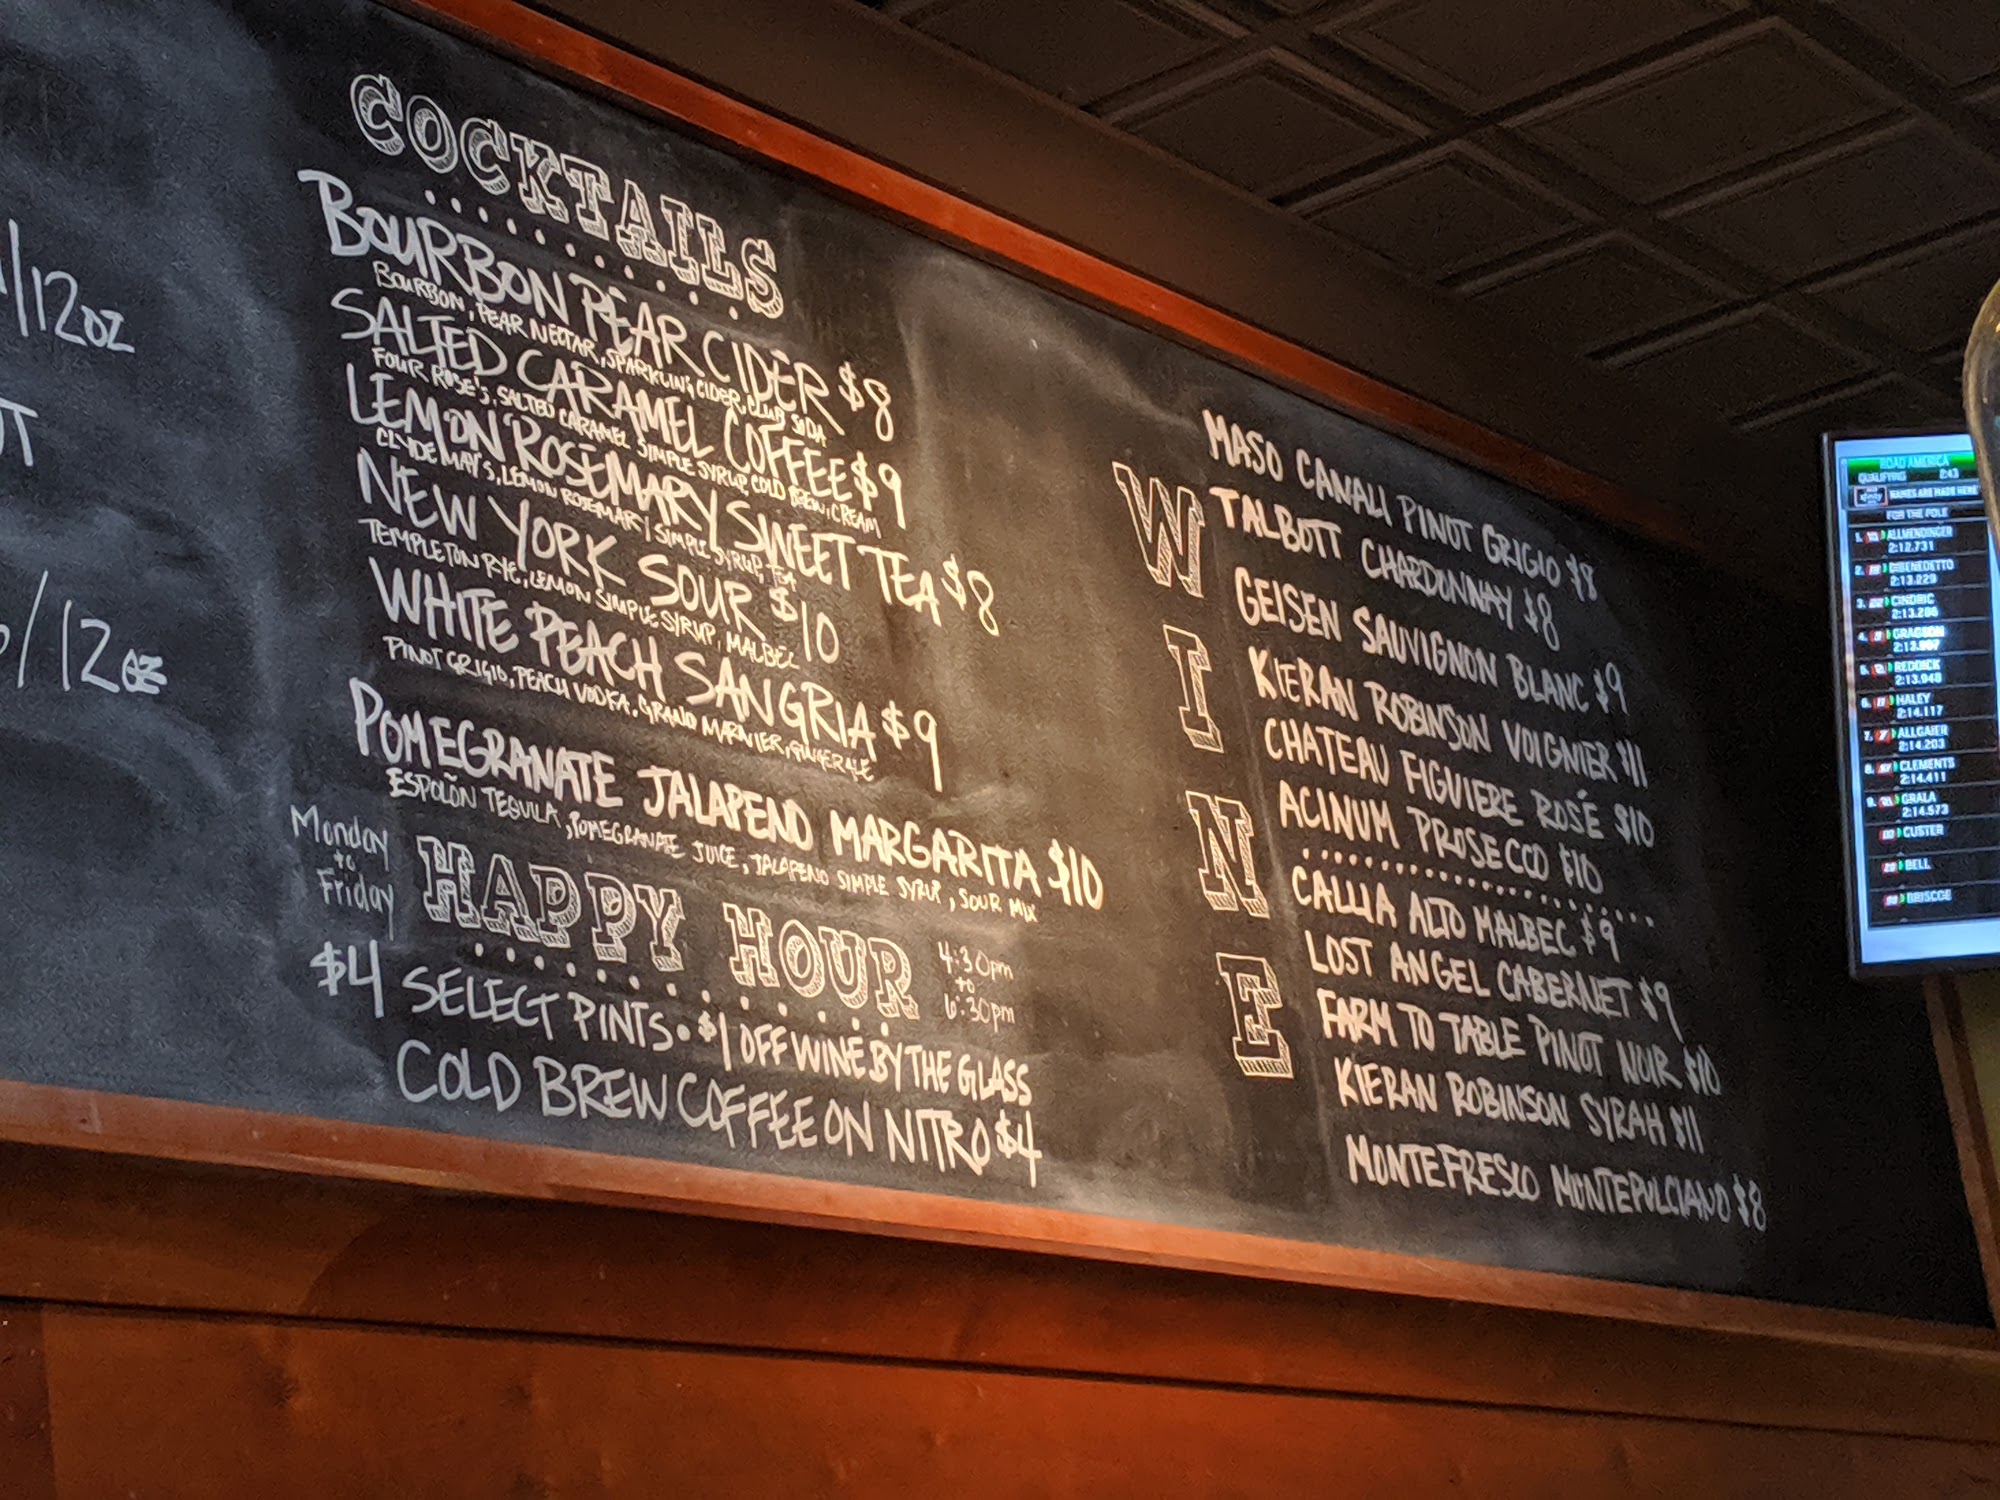 /12oz
/12oz
COCKTAILS
BOURBON PEAR CIDER $8
BOURBON, PEAR NECTAR, SPARKLING CIDER, CLUB SODA
SALTED CARAMEL COFFEE $9
FOUR ROSE'S, SALTED CARAMEL SIMPLE SYRUP, COLD BREW, CREAM
LEMON ROSEMARY SWEET TEA $8
CLYDE MAY'S, LEMON ROSEMARY SIMPLE SYRUP, TEA
NEW YORK SOUR $10
TEMPLETON RYE, LEMON SIMPLE SYRUP, MALBEC
WHITE PEACH SANGRIA $9
PINOT GRIGIO, PEACH VODKA, GRAND MARNIER, GINGERALE
POMEGRANATE JALAPENO MARGARITA $10
ESPOLÓN TEQUILA, POMEGRANATE JUICE, JALAPENO SIMPLE SYRUP, SOUR MIX
Monday
to
Friday
HAPPY HOUR
4:30pm
to
6:30pm
$4 SELECT PINTS • $1 OFF WINE BY THE GLASS
COLD BREW COFFEE ON NITRO $4
WINE
MASO CANALI PINOT GRIGIO $8
TALBOTT CHARDONNAY $8
GEISEN SAUVIGNON BLANC $9
KIERAN ROBINSON VOIGNIER $11
CHATEAU FIGUIERE ROSÉ $10
ACINUM PROSECCO $10
CALLIA ALTO MALBEC $9
LOST ANGEL CABERNET $9
FARM TO TABLE PINOT NOIR $10
KIERAN ROBINSON SYRAH $11
MONTEFRESCO MONTEPULCIANO $8
ROAD AMERICA
QUALIFYING 2:43
xfinity NAMES ARE MADE HERE
FOR THE POLE
1. ALLMENDINGER
2:12.731
2. DIBENEDETTO
2:13.229
3. CINDRIC
2:13.286
4. GRAGSON
2:13.907
5. REDDICK
2:13.948
6. HALEY
2:14.117
7. ALLGAIER
2:14.203
8. CLEMENTS
2:14.411
9. GRALA
2:14.573
CUSTER
BELL
BRISCOE